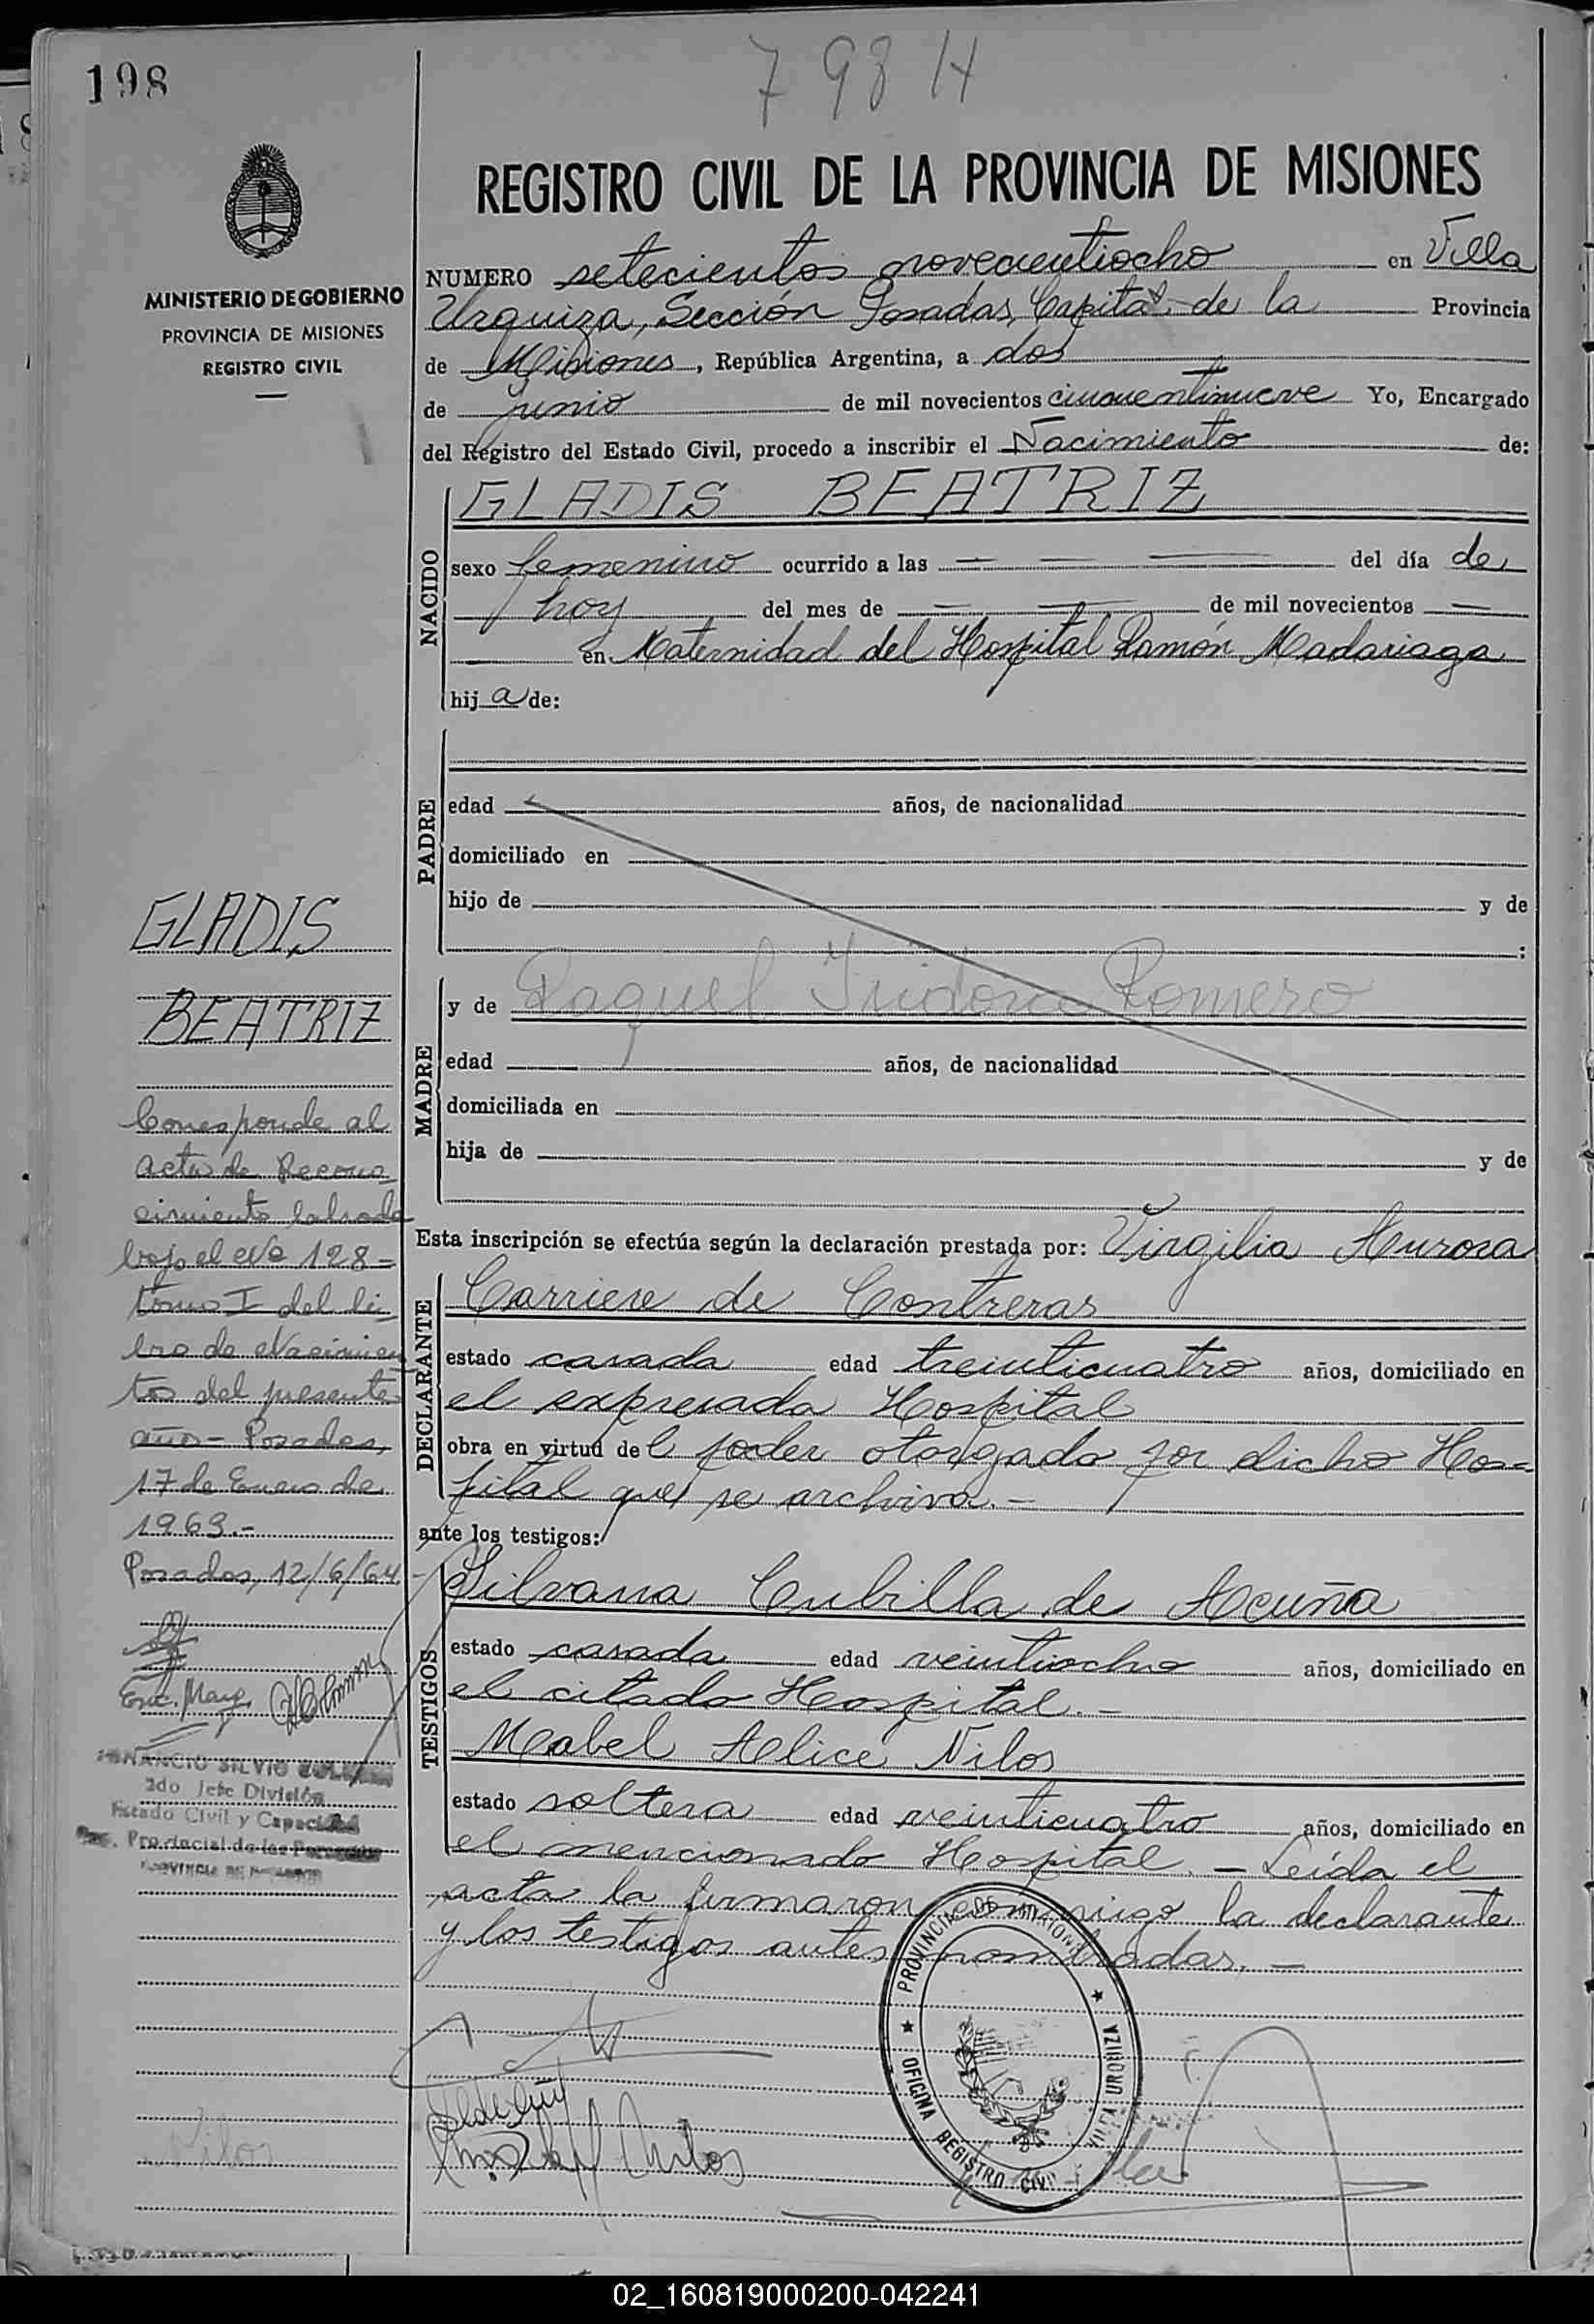 198
798 H
REGISTRO CIVIL DE LA PROVINCIA DE MISIONES
MINISTERIO DE GOBIERNO
PROVINCIA DE MISIONES
REGISTRO CIVIL
NUMERO setecientos noveaentiocho en Villa
Urquiza, Sección Posadas, Capital de la Provincia
de Misiones, República Argentina, a dos
de junio de mil novecientos cincuentinueve Yo, Encargado
del Registro del Estado Civil, procedo a inscribir el Nacimiento de:
NACIDO
GLADIS BEATRIZ
sexo femenino ocurrido a las — — — del día de
hoy del mes de — — de mil novecientos —
en Maternidad del Hospital Ramón Madariaga
hija de:
PADRE
edad años, de nacionalidad
domiciliado en
hijo de y de
:
MADRE
y de Raquel Isidora Romero
edad años, de nacionalidad
domiciliada en
hija de y de
Esta inscripción se efectúa según la declaración prestada por: Virgilia Aurora
DECLARANTE
Carriere de Contreras
estado casada edad treinticuatro años, domiciliado en
el expresado Hospital
obra en virtud del poder otorgado por dicho Hos=
pital que se archiva.-
ante los testigos:
TESTIGOS
Silvana Cubilla de Acuña
estado casada edad veintiocho años, domiciliado en
el citado Hospital.-
Mabel Alice Nilos
estado soltera edad veinticuatro años, domiciliado en
el mencionado Hospital.- Leída el
acta la firmaron conmigo la declarante
y los testigos antes nombradas.-
GLADIS
BEATRIZ
Corresponde al
acta de Recono-
cimiento labrada
bajo el No 128-
tomo I del li-
bro de Nacimien
tos del presente
año- Posadas,
17 de Enero de
1963.-
Posadas, 12/6/64
Enc. Mayo
SILVIO
2do Jefe División
Estado Civil y Capacidad
Provincial de las Personas
PROVINCIA DE MISIONES
PROVINCIA DE MISIONES
OFICINA REGISTRO CIVIL VILLA URQUIZA
Nilos
Nilos
02_160819000200-042241